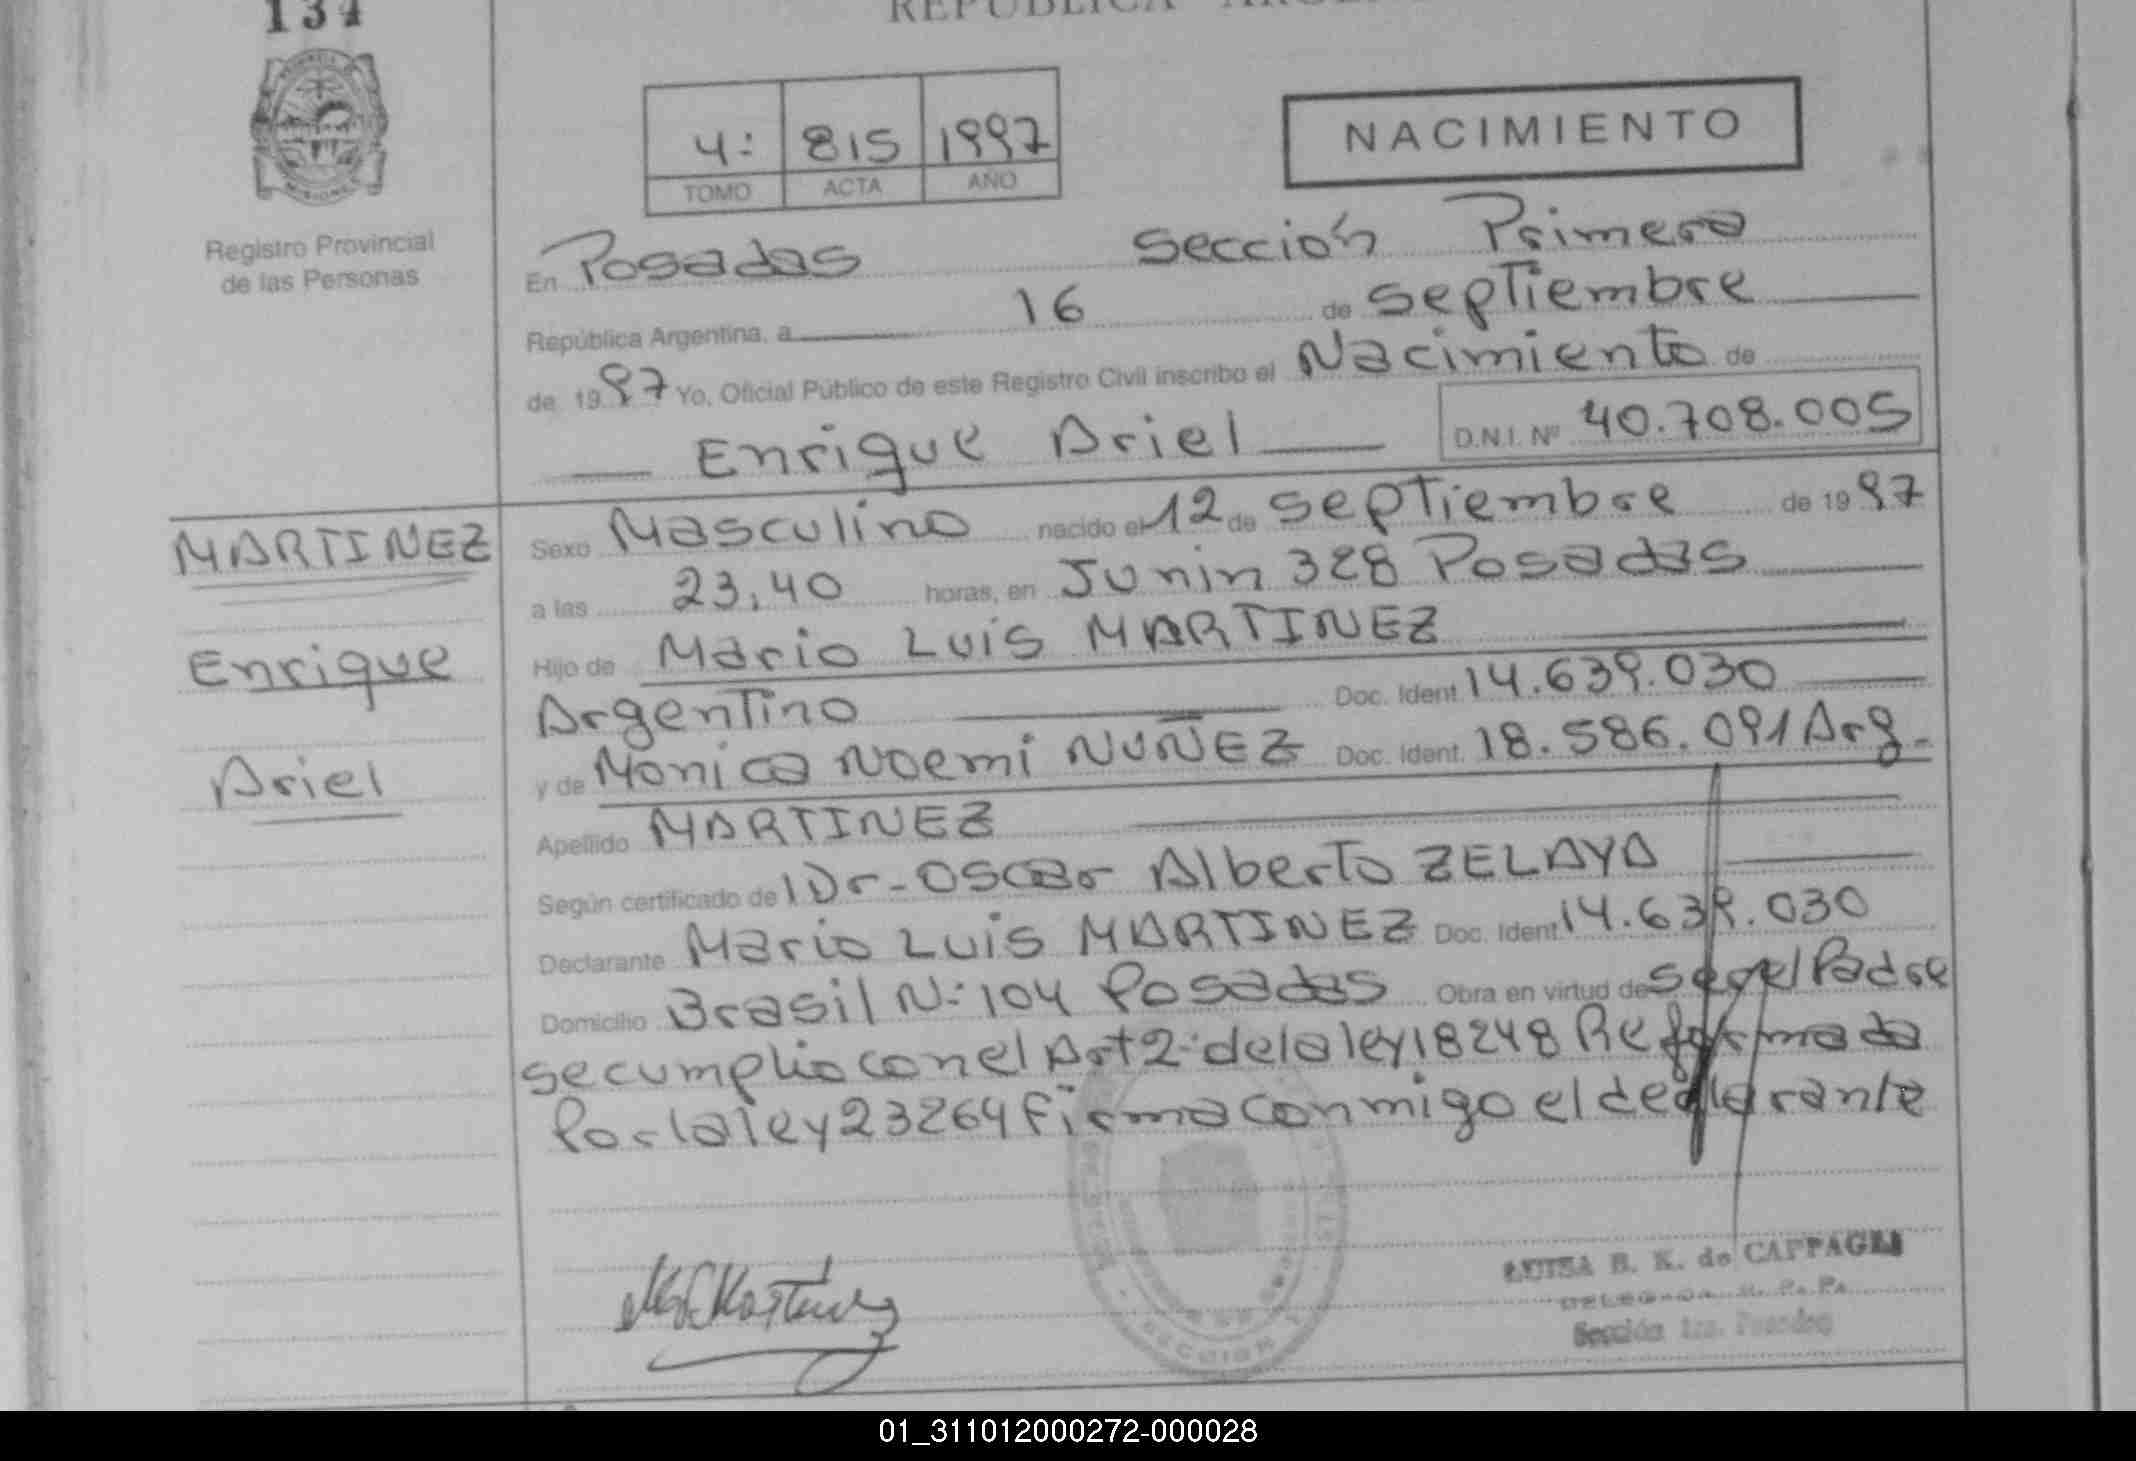 134
REPUBLICA
Registro Provincial
de las Personas
4: 815 1997
TOMO ACTA AÑO
NACIMIENTO
En Posadas Sección Primera
República Argentina, a 16 de septiembre
de 1997 Yo, Oficial Público de este Registro Civil inscribo el Nacimiento de
Enrique Ariel D.N.I. Nº 40.708.005
MARTINEZ
Enrique
Ariel
Sexo Masculino nacido el 12 de septiembre de 1997
a las 23,40 horas, en Junin 328 Posadas
Hijo de Mario Luis MARTINEZ
Argentino Doc. Ident. 14.639.030
y de Monica Noemi NUÑEZ Doc. Ident. 18.586.091 Arg.
Apellido MARTINEZ
Según certificado de Dr- Oscar Alberto ZELAYA
Declarante Mario Luis MARTINEZ Doc. Ident. 14.639.030
Domicilio Brasil N:104 Posadas Obra en virtud de ser el Padre
se cumplio con el Art 2: de la ley 18248 Reformada
Por la ley 23264 firma conmigo el declarante
LUISA B. K. de CAPPAGLI
Sección 1ra. Posadas
SECCION
01_311012000272-000028